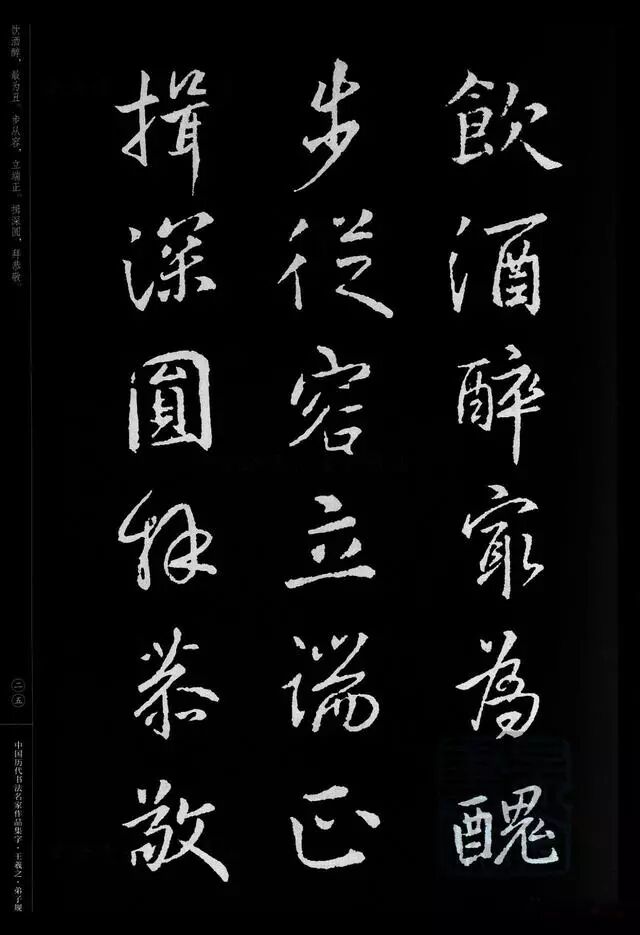 飲酒醉冣為醜
步從容立端正
揖深圓拜恭敬
饮酒醉，最为丑。步从容，立端正。揖深圆，拜恭敬。
二五
中国历代书法名家作品集字·王羲之·弟子规